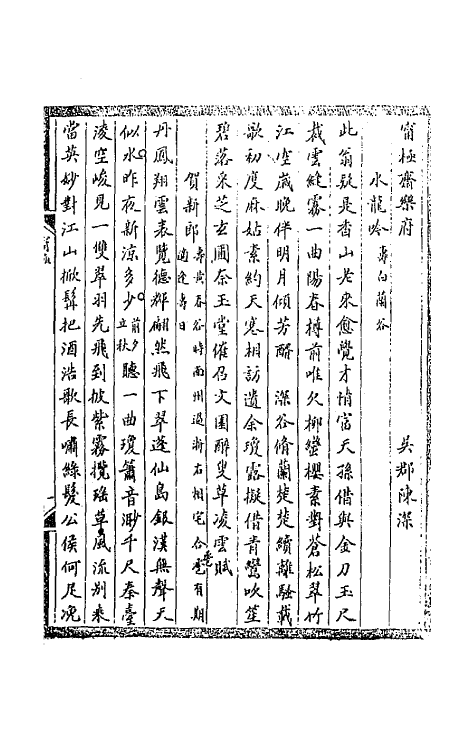 甯極齋樂府　吳郡陳深
水龍吟　壽白蘭谷
此翁疑是香山老來愈覺才情富天孫借與金刀玉尺
裁雲縫霧一曲陽春樽前唯欠柳蠻櫻素對蒼松翠竹
江空歲晚伴明月傾芳醑　深谷脩蘭楚楚續離騷載
歌初度麻姑素約天寒相訪遺余瓊露擬借青鸞吹笙
碧落采芝玄圃奈玉堂催召文園醉叟草凌雲賦
賀新郎　壽黄春谷時南州過浙右相宅合卺有期
適逢壽日
丹鳳翔雲表覽德輝翩然飛下翠蓬仙島銀漢無聲天
似水昨夜新涼多少前夕立秋聽一曲瓊簫音渺千尺秦臺
淩空峻見一雙翠羽先飛到披紫霧攬瑶草　風流別乘
當英妙對江山掀髯把酒浩歌長嘯綠髮公侯何足況